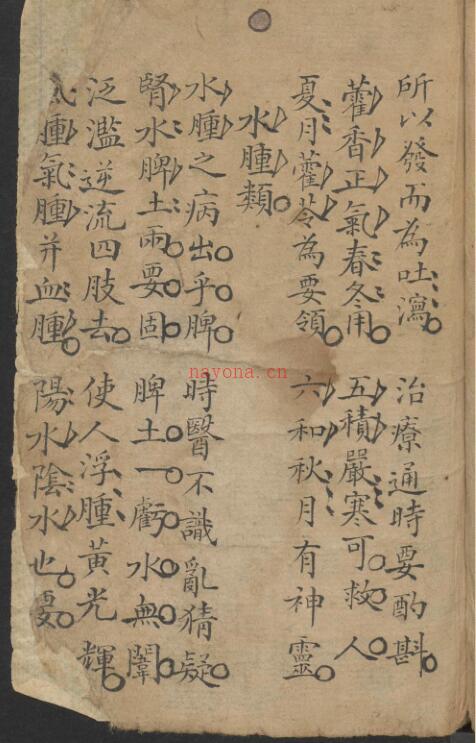 所以發而為吐瀉 治療通時要酌斟
藿香正氣春冬用 五積嚴寒可救人
夏月藿苓為要領 六和秋月有神靈
水腫類
水腫之病出乎脾 時醫不識亂猜疑
腎水脾土兩要固 脾土一虧水無闈
泛濫逆流四肢去 使人浮腫黃光輝
腫氣腫并血腫 陽水陰水也要
nayona.cn